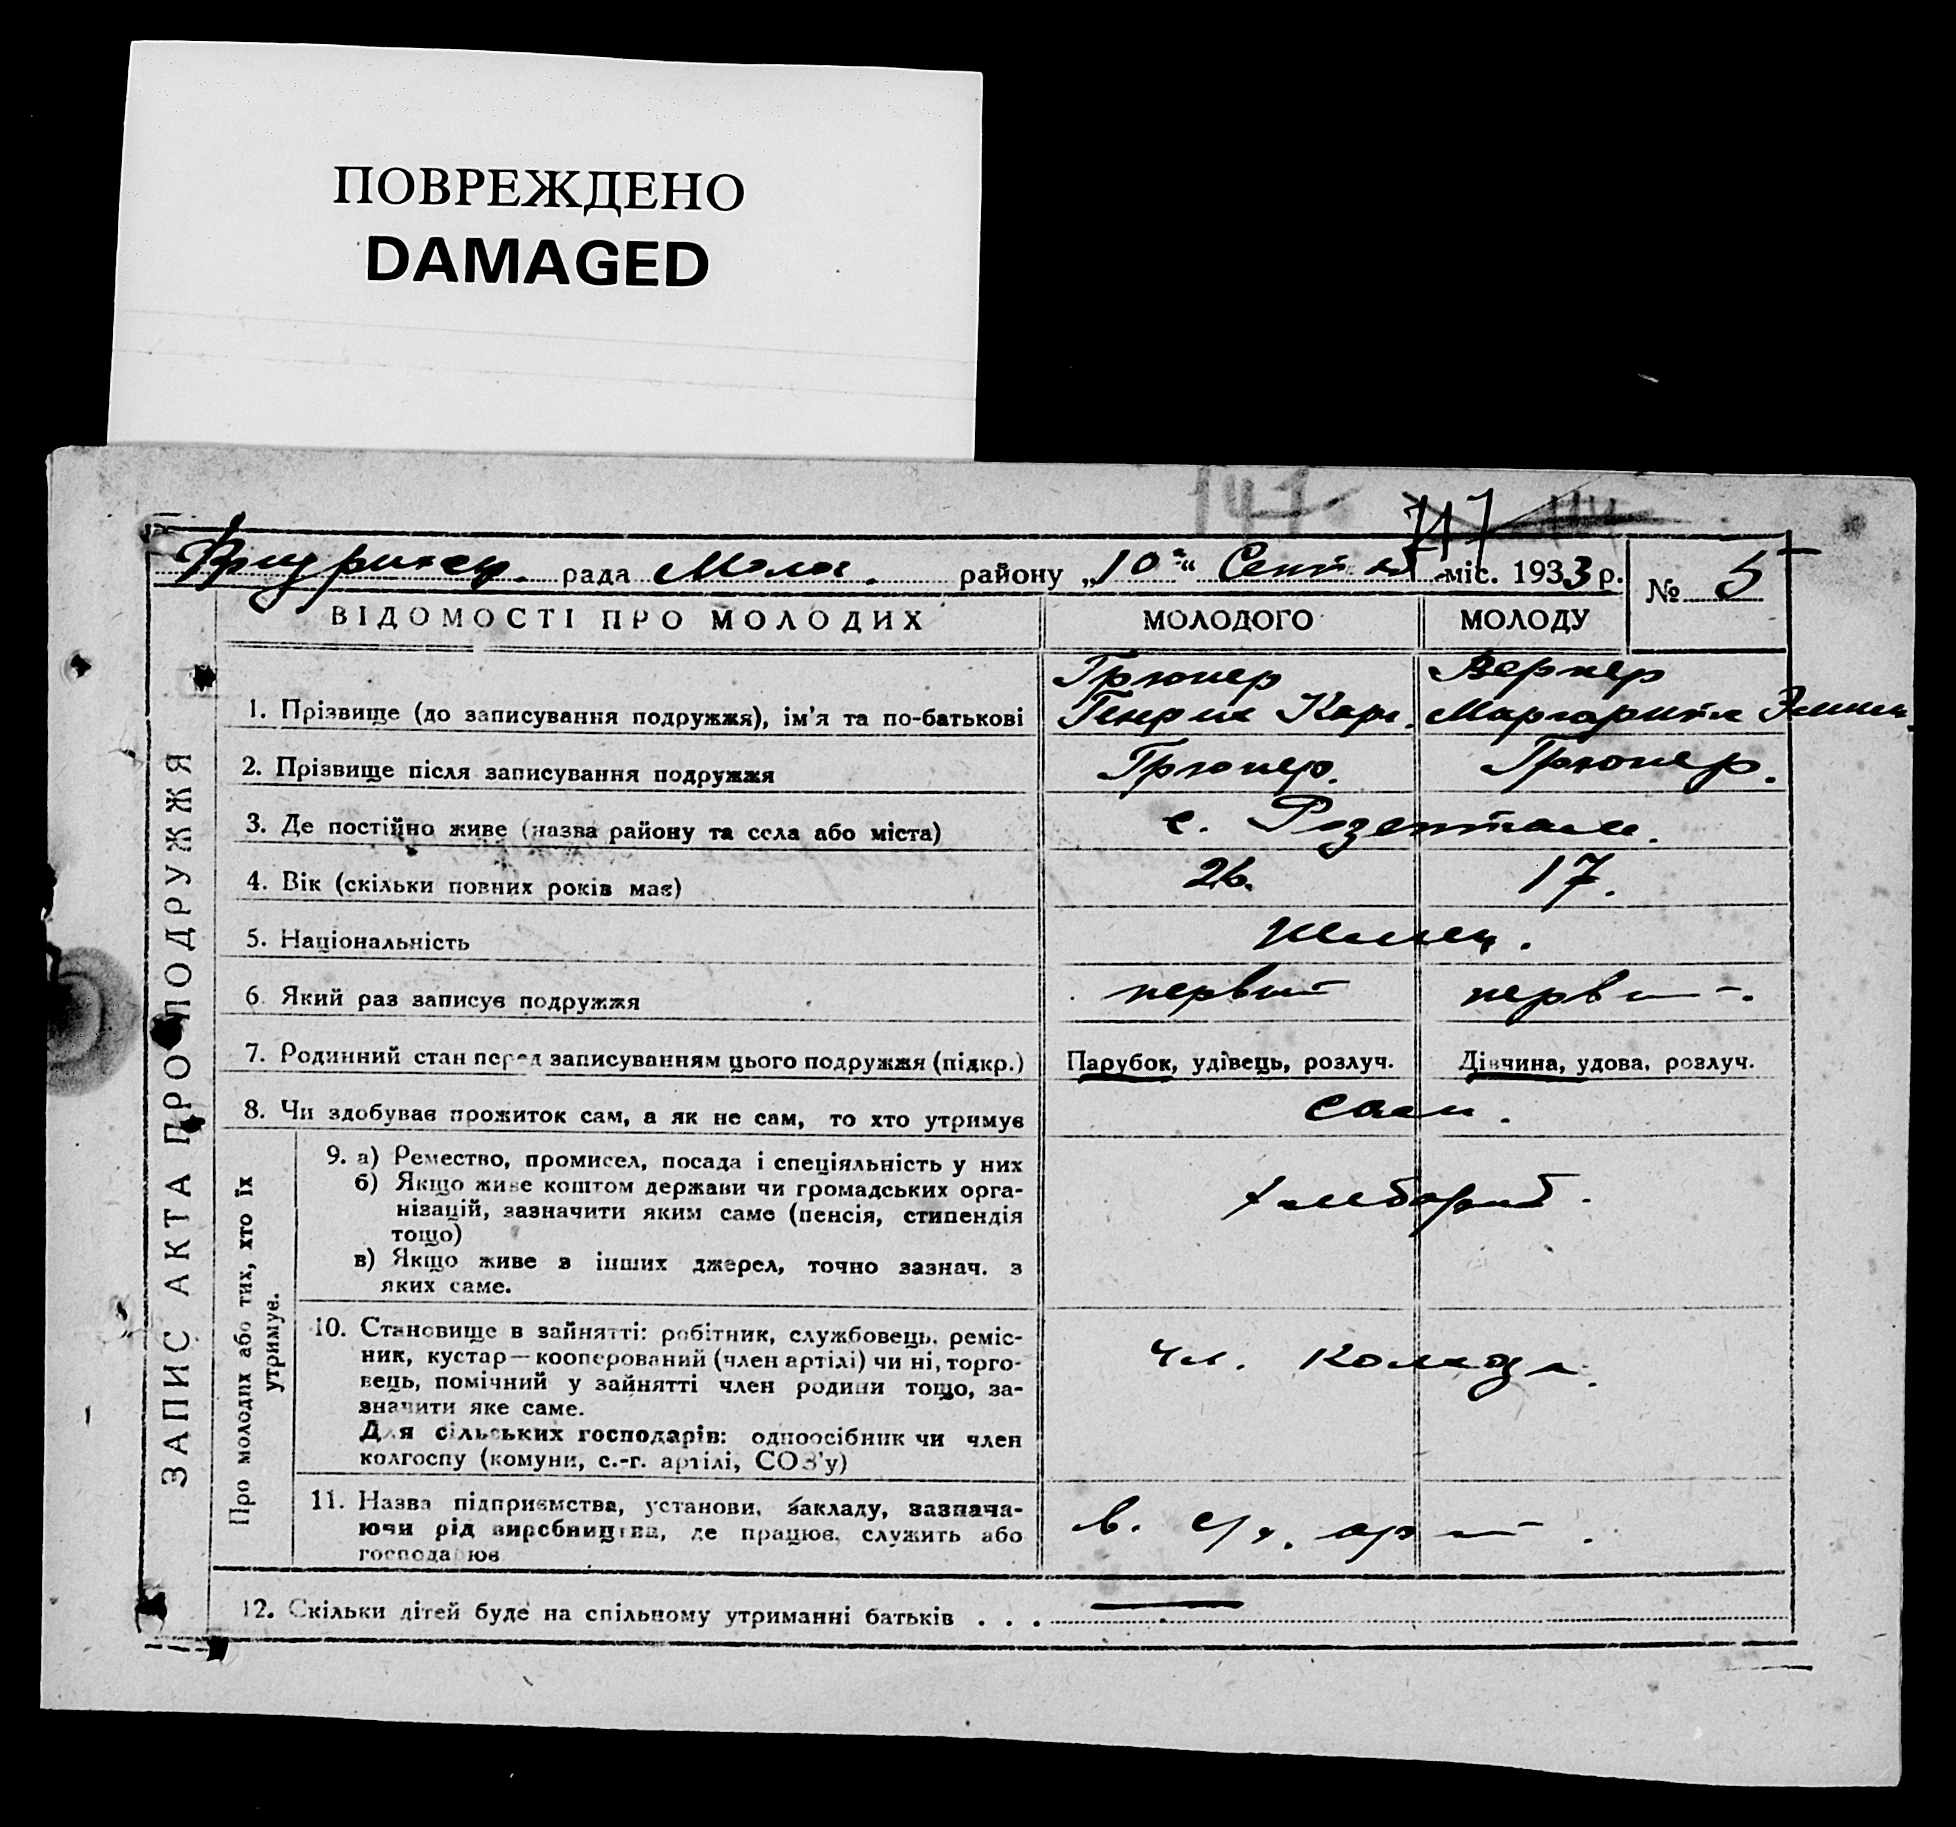 ПОВРЕЖДЕНО
DAMAGED
147
рада Молоч. району „10“ Сентяб міс. 1933 р. № 5
ВІДОМОСТІ ПРО МОЛОДИХ МОЛОДОГО МОЛОДУ
ЗАПИС АКТА ПРО ПОДРУЖЖЯ
Грюнер Вернер
1. Прізвище (до записування подружжя), ім'я та по-батькові Генрих Карл. Маргарита
2. Прізвище після записування подружжя Грюнер. Грюнер.
3. Де постійно живе (назва району та села або міста) с. Розенталь.
4. Вік (скільки повних років має) 26. 17.
5. Національність немец.
6. Який раз записує подружжя первый первый.
7. Родинний стан перед записуванням цього подружжя (підкр.) Парубок, удівець, розлуч. Дівчина, удова, розлуч.
8. Чи здобуває прожиток сам, а як не сам, то хто утримує сами.
Про молодих або тих, хто їх
утримує.
9. а) Ремество, промисел, посада і спеціяльність у них
б) Якщо живе коштом держави чи громадських орга-
нізацій, зазначити яким саме (пенсія, стипендія
тощо)
хлебороб.
в) Якщо живе з інших джерел, точно зазнач. з
яких саме.
10. Становище в зайнятті: робітник, службовець, реміс-
ник, кустар—кооперований (член артілі) чи ні, торго-
вець, помічний у зайнятті член родини тощо, за-
значити яке саме.
чл. колхоза.
Для сільських господарів: одноосібник чи член
колгоспу (комуни, с.-г. артілі, СОЗ'у)
11. Назва підприємства, установи, закладу, зазнача-
ючи рід виробництва, де працює, служить або
господарює
в. с/х. арт.
12. Скільки дітей буде на спільному утриманні батьків . . . —